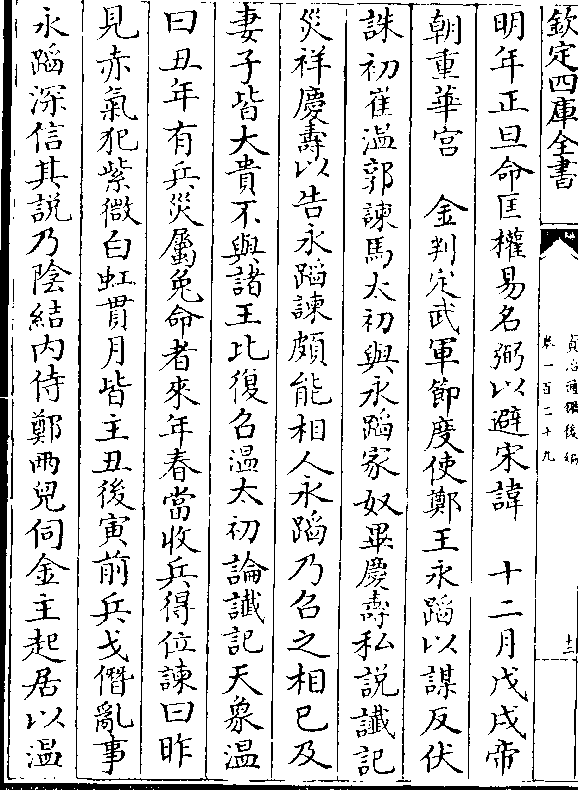 欽定四庫全書
資治通鑑後編
卷一百二十九
十三
明年正旦命匡權易名弼以避宋諱　十二月戊戌帝
朝重華宮　金判定武軍節度使鄭王永蹈以謀反伏
誅初崔溫郭諫馬太初與永蹈家奴畢慶壽私説讖記
災祥慶壽以告永蹈諫頗能相人永蹈乃召之相已及
妻子皆大貴不與諸王比復召溫太初論讖記天象溫
曰丑年有兵災屬兔命者來年春當收兵得位諫曰昨
見赤氣犯紫微白虹貫月皆主丑後寅前兵戈僭亂事
永蹈深信其説乃陰結内侍鄭雨兒伺金主起居以溫